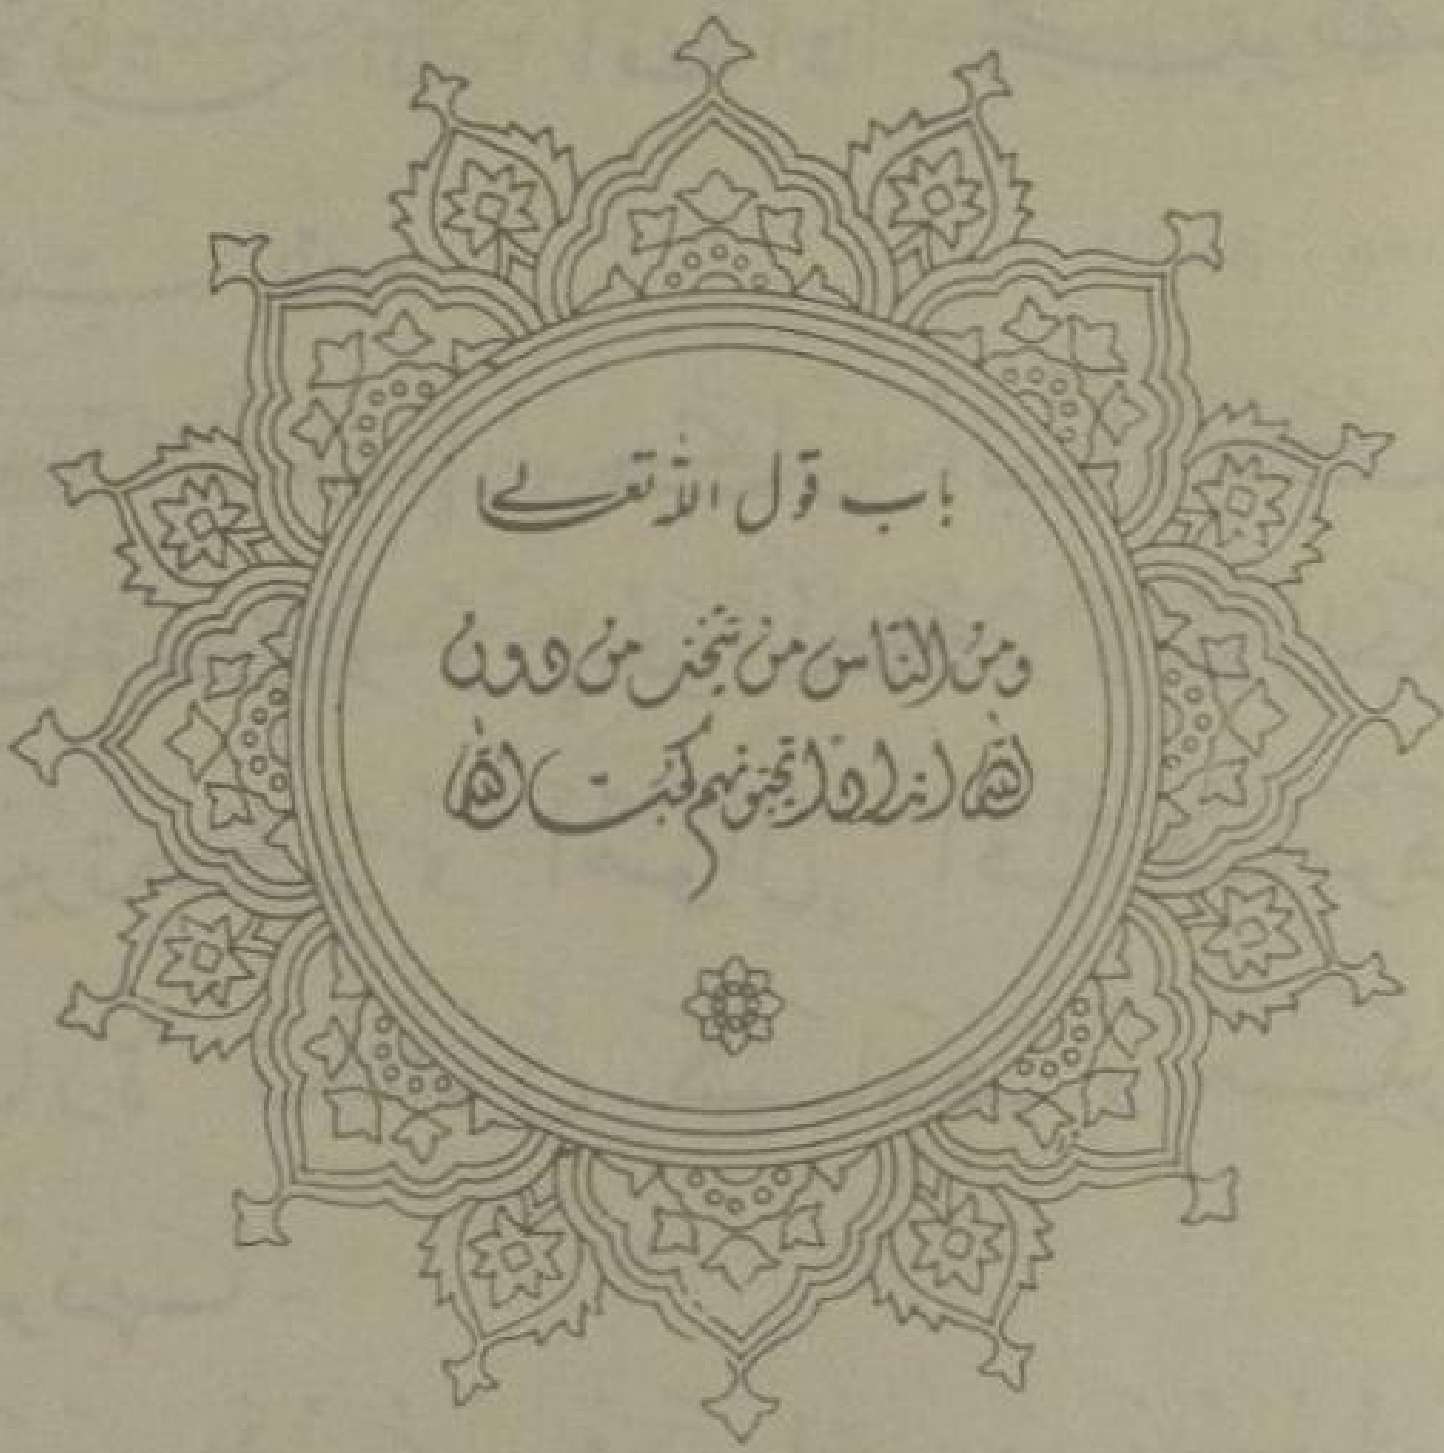 باب قول الله تعالى
ومن الناس من يتخذ من دون
الله اندادا يحبونهم كحب الله